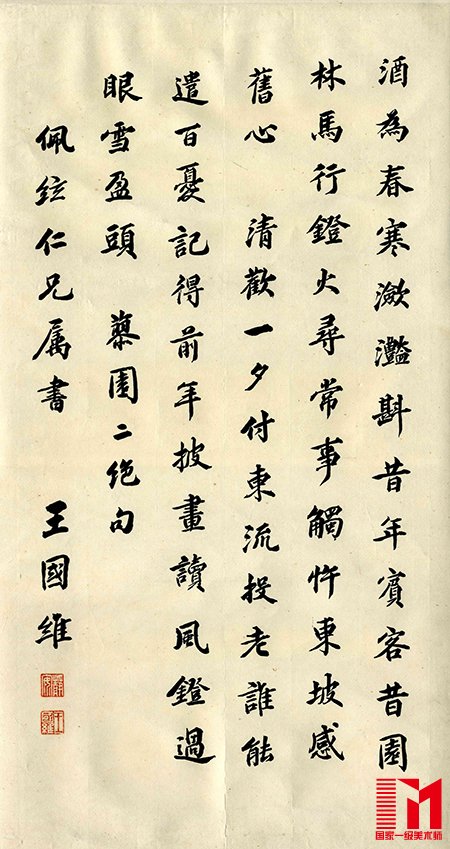 酒為春寒瀲灩斟昔年賓客昔園
林馬行鐙火尋常事觸忤東坡感
舊心　清歡一夕付東流投老誰能
遣百憂記得前年披畫讀風鐙過
眼雪盈頭　藜園二絕句
佩鉉仁兄属書　王國維
国家一级美术师